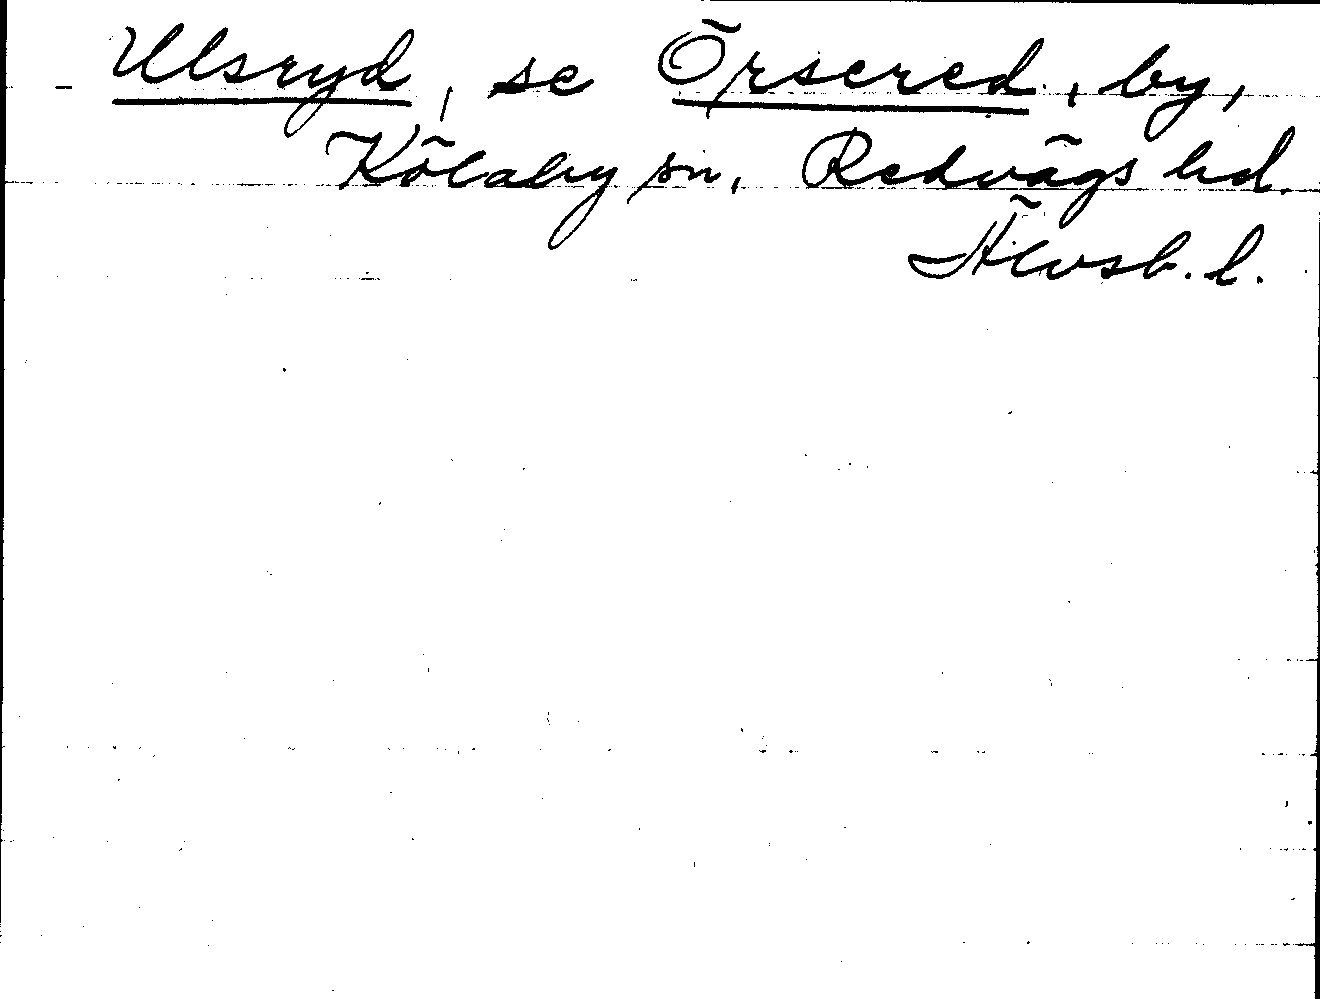 Ulsryd, se Örsered, by,
Kölaby sn, Redvägs hd.
Älvsb. l.